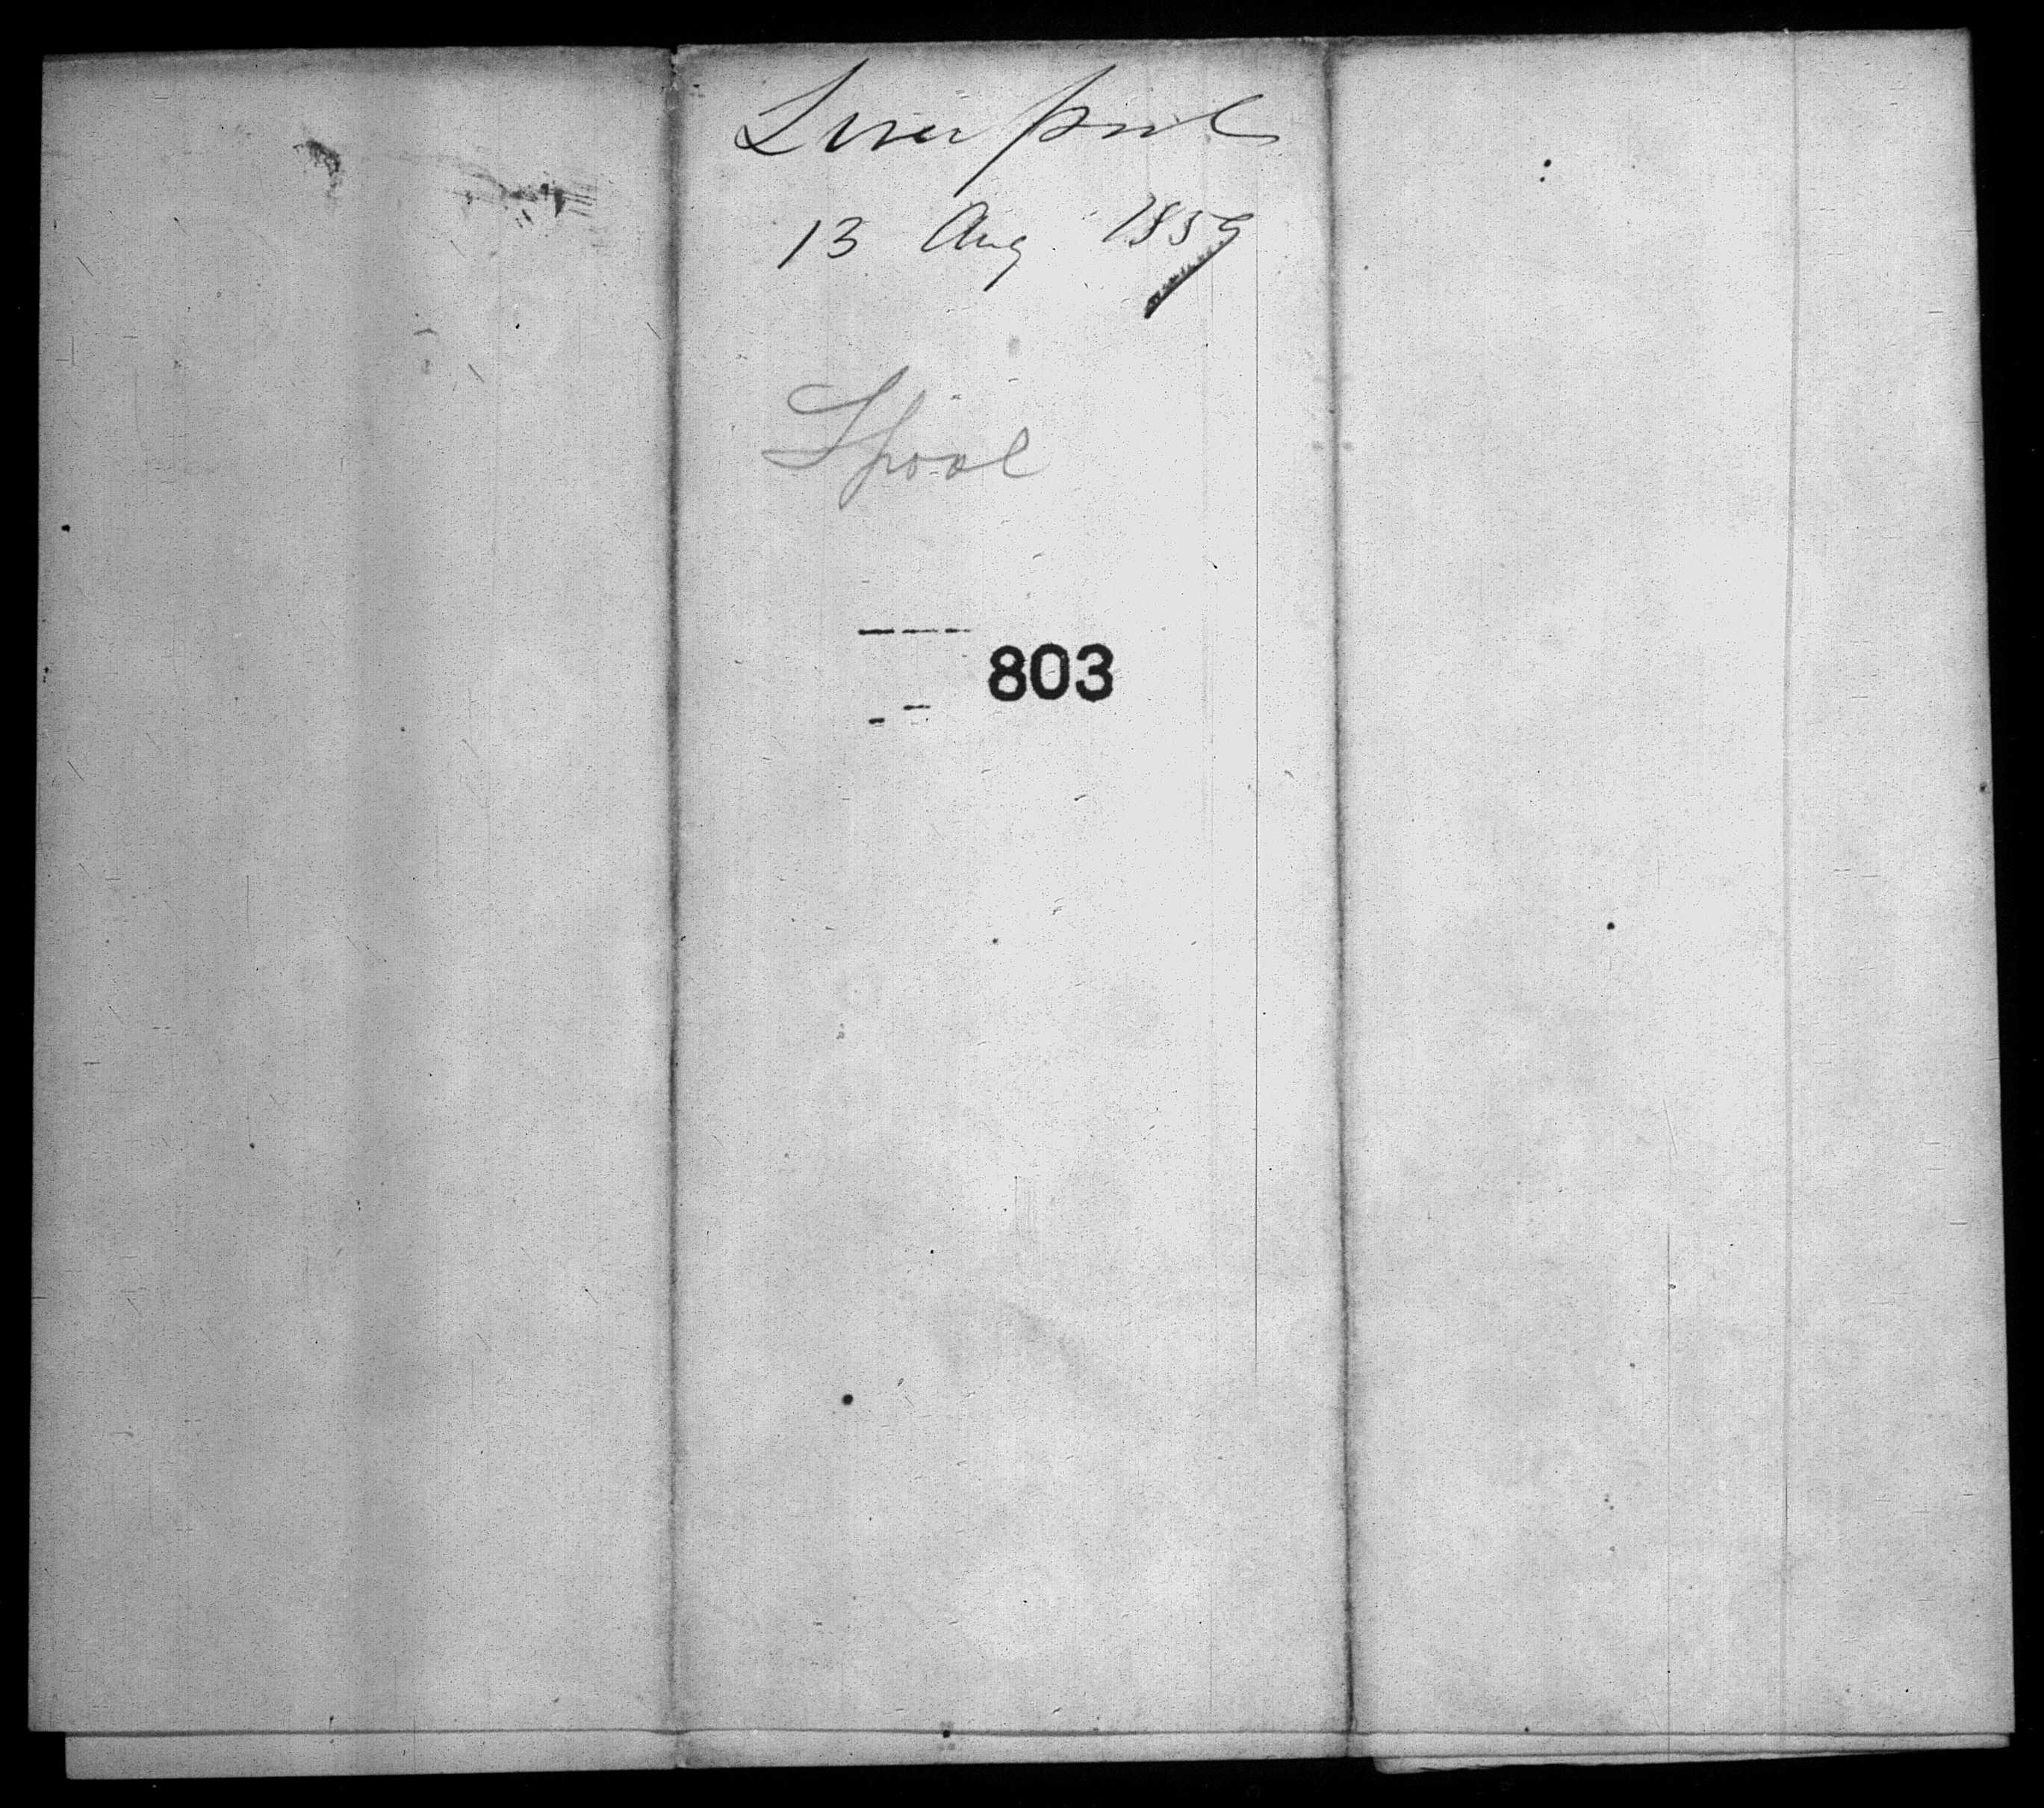 Liverpool
13 Aug. 1859
Lpool
803